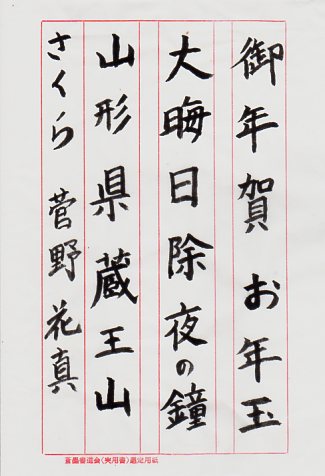 御年賀 お年玉
大晦日除夜の鐘
山形県蔵王山
さくら 菅野花真
書道会(実用書)選定用紙